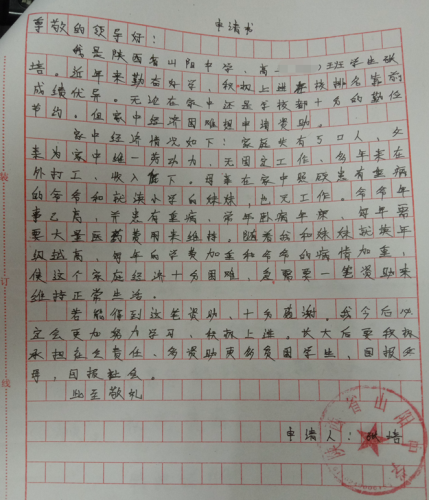 申请书
尊敬的领导好:
我是陕西省山阳中学、高 班学生
培。近年来勤奋好学、积极上进在校排名靠前
成绩优异。无论在家中还是学校都十分的勤俭
节约。但家中经济困难想申请资助。
家中经济情况如下:家庭共有5口人、父
亲为家中唯一劳动力、无固定工作、多年来在
外打工、收入 下。母亲在家中照顾患有重病
的爷爷和就读小学的妹妹,也无工作。爷爷年
事已高、并患有重病、常年卧病在床、每年需
要大量医药费用来维持。随着我和妹妹就读年
级越高、每年的学费加重和爷爷的病情加重,
使这个家庭经济十分困难、急需要一笔资助来
维持正常生活。
若能得到这笔资助、十分感谢。我今后必
定会更加努力学习、积极上进。长大后要积极
承担社会责任、多资助更多贫困学生、回报父
母,回报社会。
此至敬礼
申请人: 培
陕西省山阳中学
装
订
线